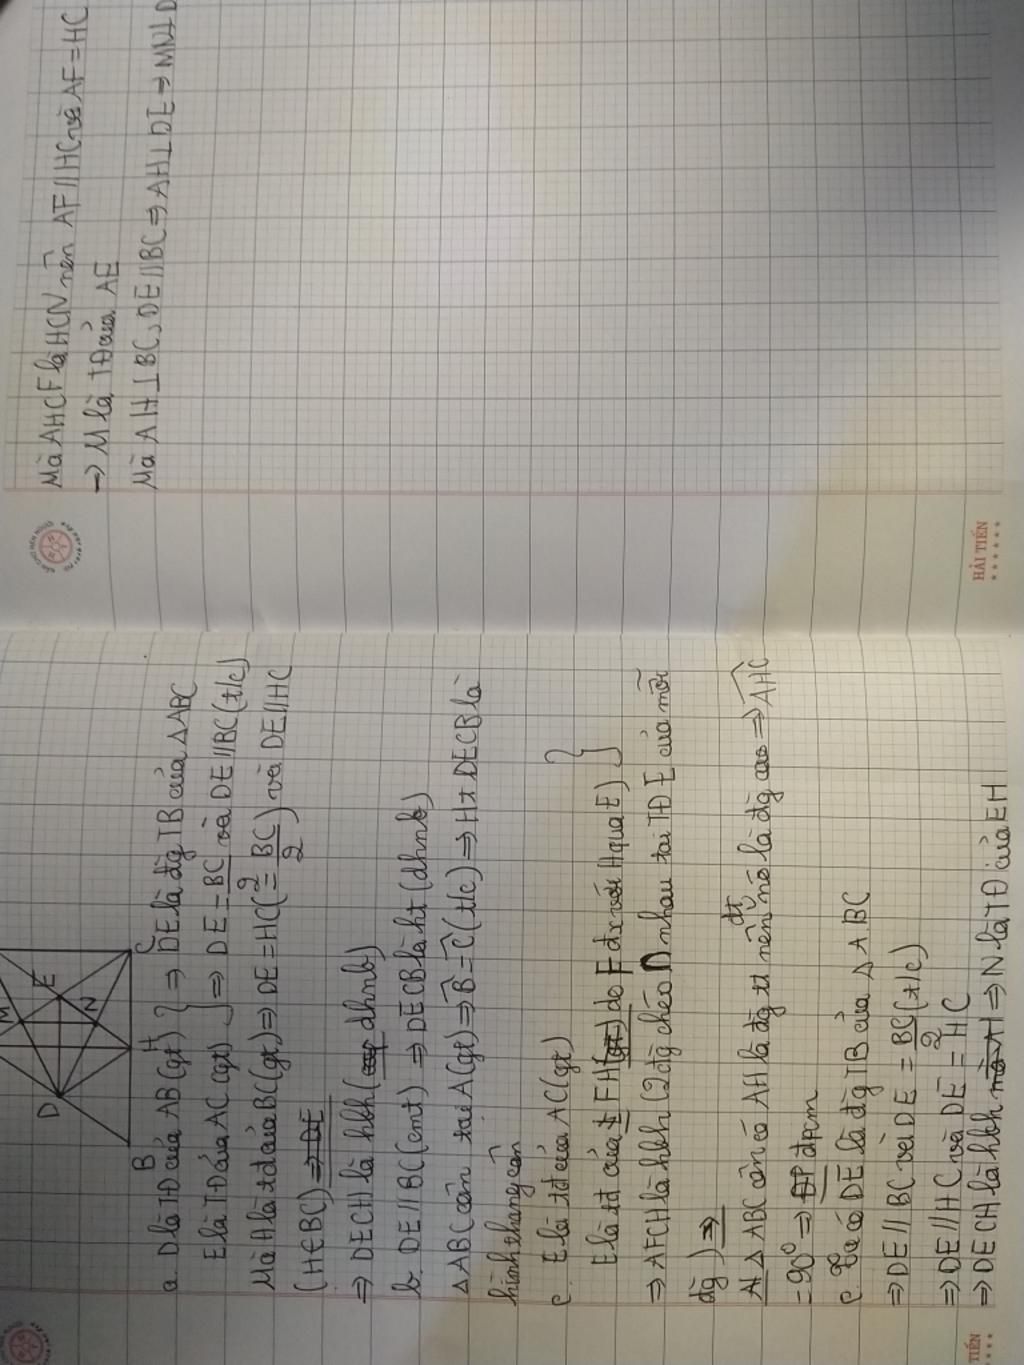 M
E
D
N
B
H
C
a. D là TĐ của AB (gt) } ⇒ DE là đg TB của ΔABC
E là TĐ của AC (gt) } ⇒ DE = BC/2 và DE // BC (t/c)
Mà H là tđ của BC (gt) ⇒ DE = HC (= BC/2) và DE // HC
(H∈BC) ⇒ DE
⇒ DECH là hbh (dhnb)
b. DE // BC (cmt) ⇒ DECB là ht (dhnb)
ΔABC cân tại A (gt) ⇒ B̂ = Ĉ (t/c) ⇒ Ht DECB là
hình thang cân
c. E là tđ của AC (gt) }
E là tđ của FH (gt) do F đx với H qua E) }
⇒ AFCH là hbh (2 đg chéo ∩ nhau tại TĐ E của mỗi
đg) ⇒
Δ ABC cân có AH là đg tt nên nó là đg cao ⇒ AHC
= 90° ⇒ đpcm
c. Ta có DE là đg TB của Δ ABC
⇒ DE // BC và DE = BC/2 (t/c)
⇒ DE // HC và DE = HC
⇒ DECH là hbh mà ⇒ N là TĐ của EH
TIẾN
Mà AHCF là HCN nên AF // HC và AF = HC
→ M là TĐ của AE
Mà AH⊥BC, DE//BC ⇒ AH⊥DE ⇒ MN⊥D
HẢI TIẾN